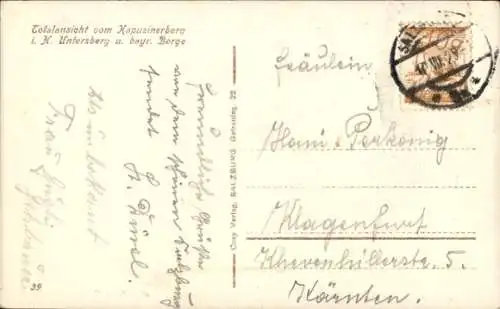 Totalansicht vom Kapuzinerberg
i. H. Untersberg u. bayr. Berge
Freundliche Grüße
von dem schönen Salzburg
sendet
Als unbekannt
Cosy Verlag, Salzburg, Getreideg. 22
39
Fräulein
Hani Perkonig
Klagenfurt
Khevenhüllerstr. 5.
Kärnten.